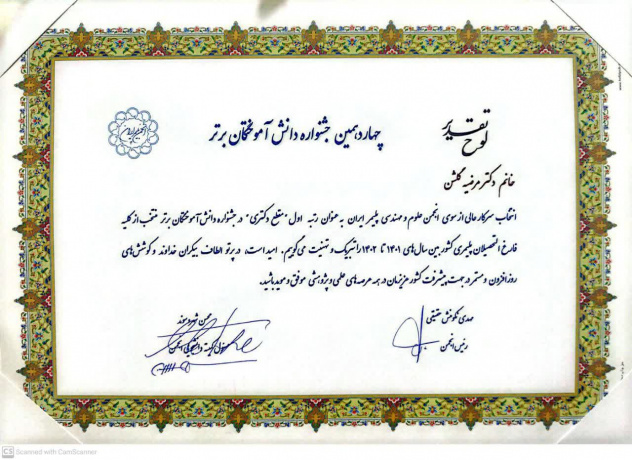 لوح تقدیر
چهاردهمین جشنواره دانش آموختگان برتر
خانم دکتر مرضیه گلشن
انتخاب سرکار عالی از سوی انجمن علوم و مهندسی پلیمر ایران به عنوان رتبه اول "مقطع دکتری" در جشنواره دانش‌آموختگان برتر منتخب از کلیه
فارغ التحصیلان پلیمری کشور بین سال‌های ۱۴۰۱ تا ۱۴۰۲ را تبریک و تهنیت می‌گویم. امید است، در پرتو الطاف بیکران خداوند و کوشش‌های
روز افزون و مستمر در جهت پیشرفت کشور عزیزمان در همه عرصه‌های علمی و پژوهشی موفق و موید باشید.
مهدی نکومنش حقیقی
رئیس انجمن
محسن شهروسوند
مسئول کمیته دانشجویی انجمن
CS Scanned with CamScanner